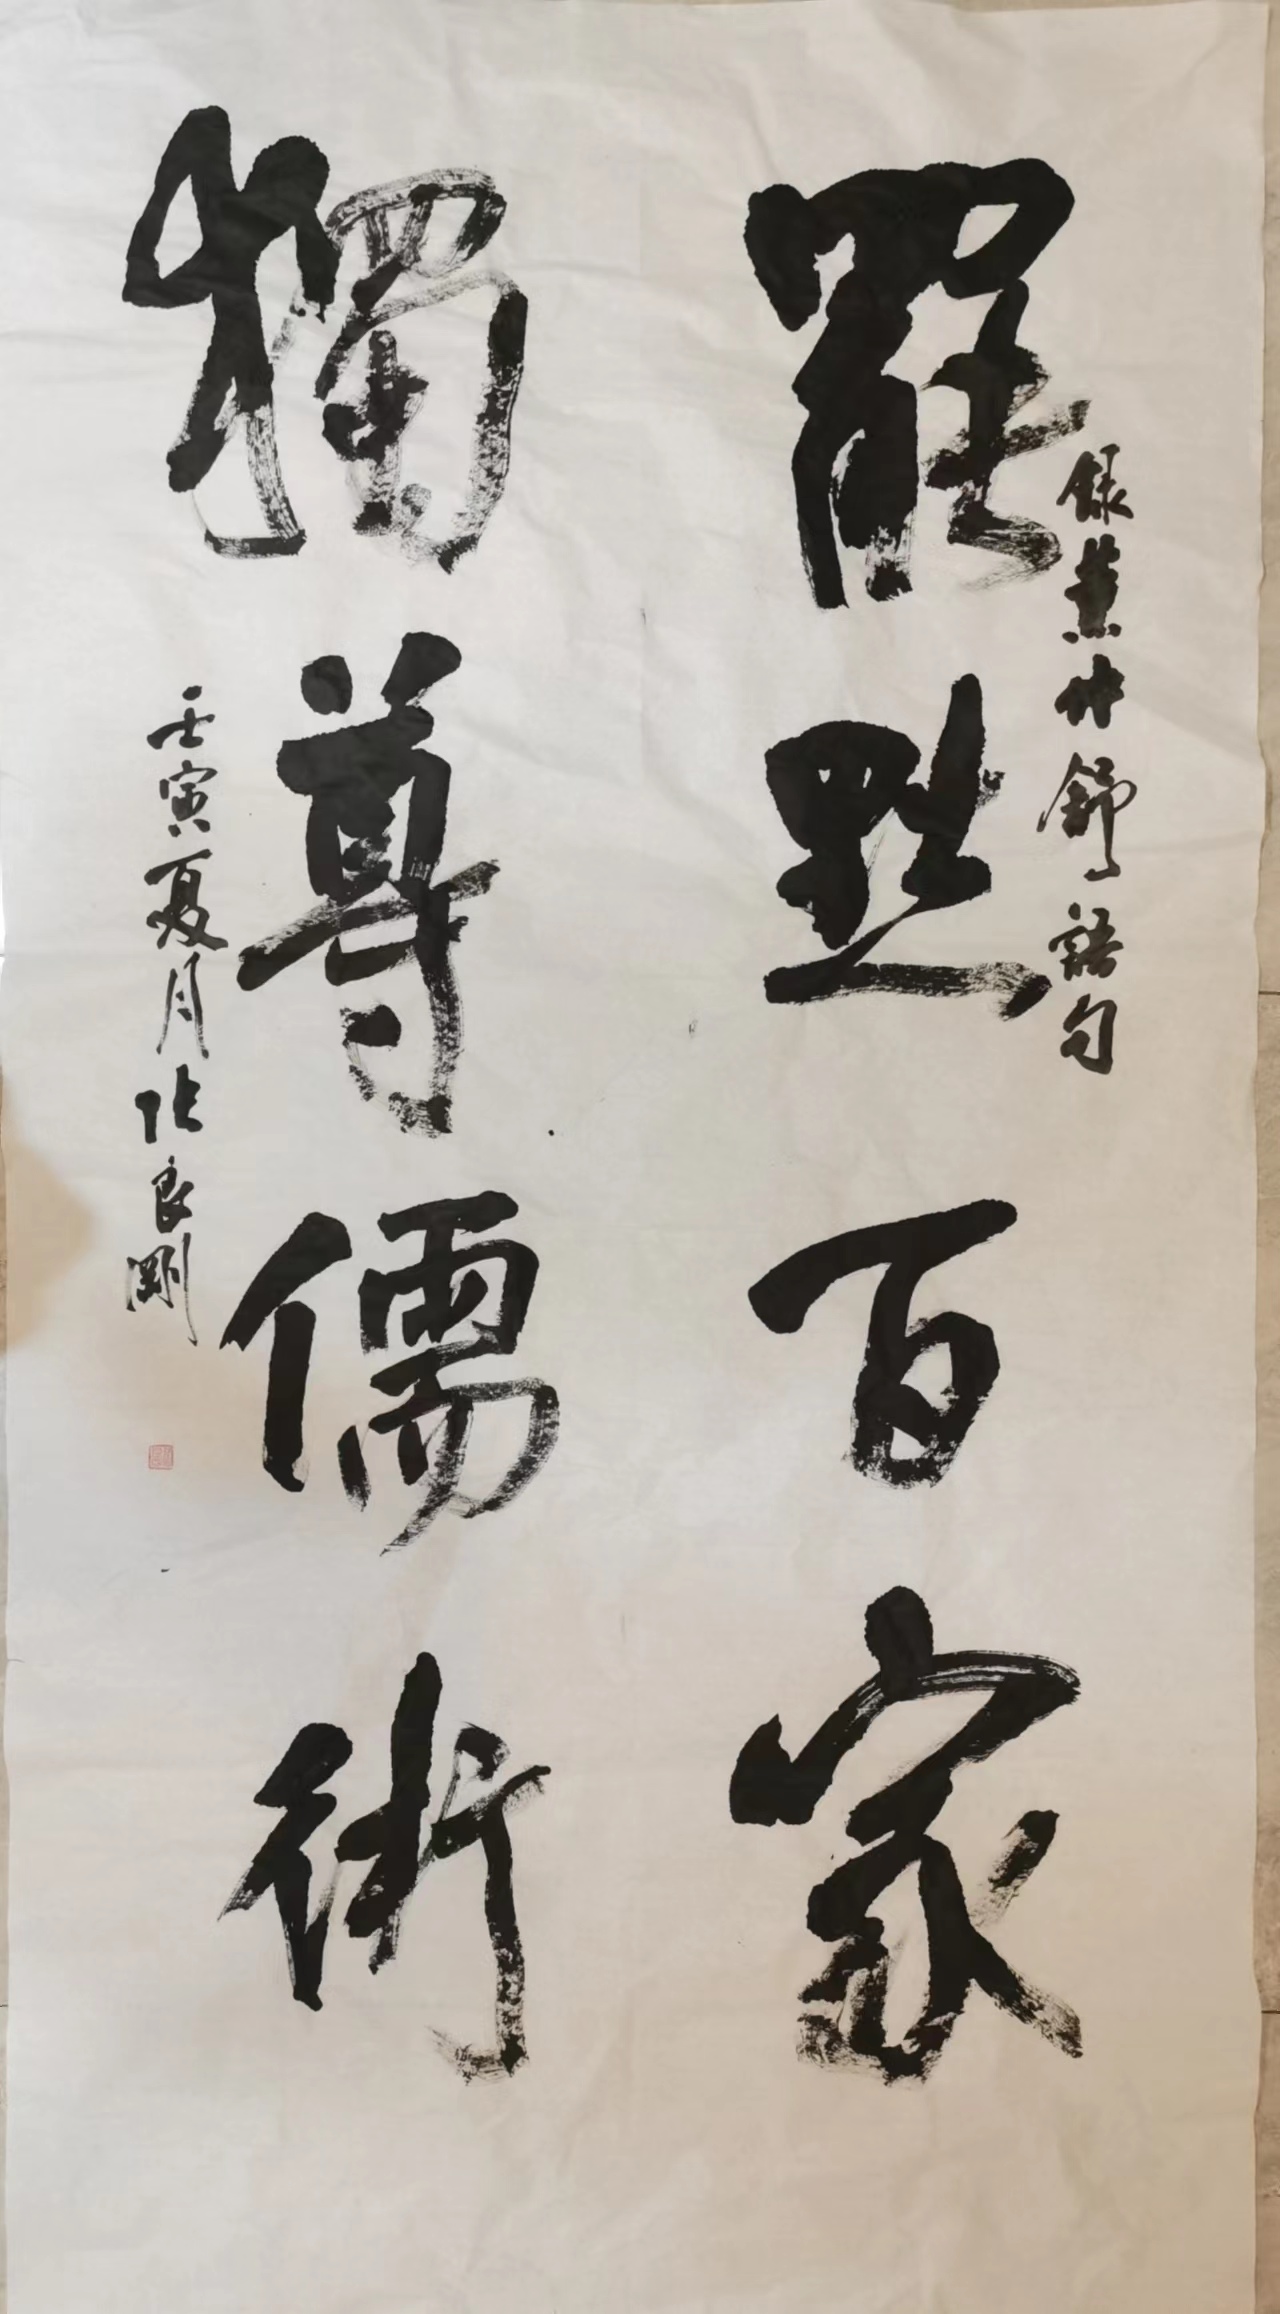 罷黜百家
録董仲舒語句
獨尊儒術
壬寅夏月张良剛